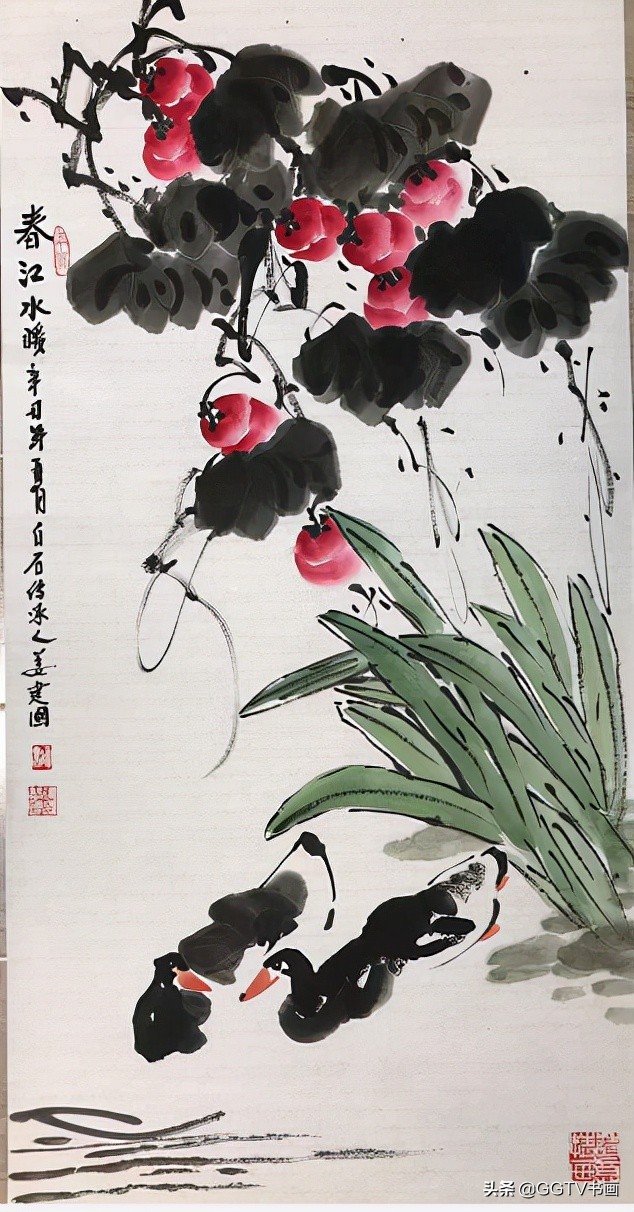 春江水暖 辛丑年夏月 白石传承人姜建国
头条 @GGTV书画